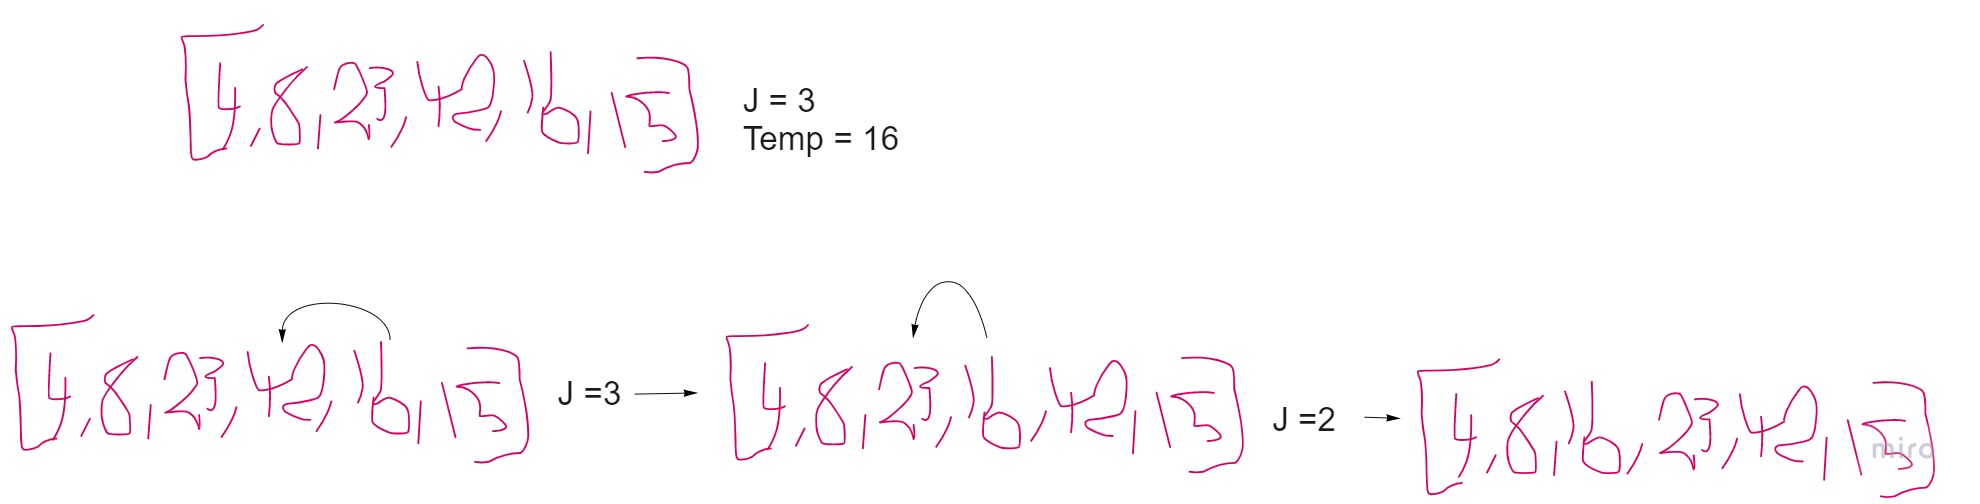 [4,8,23,42,16,15]
J = 3
Temp = 16
[4,8,23,42,16,15]
J =3
[4,8,23,16,42,15]
J =2
[4,8,16,23,42,15]
miro